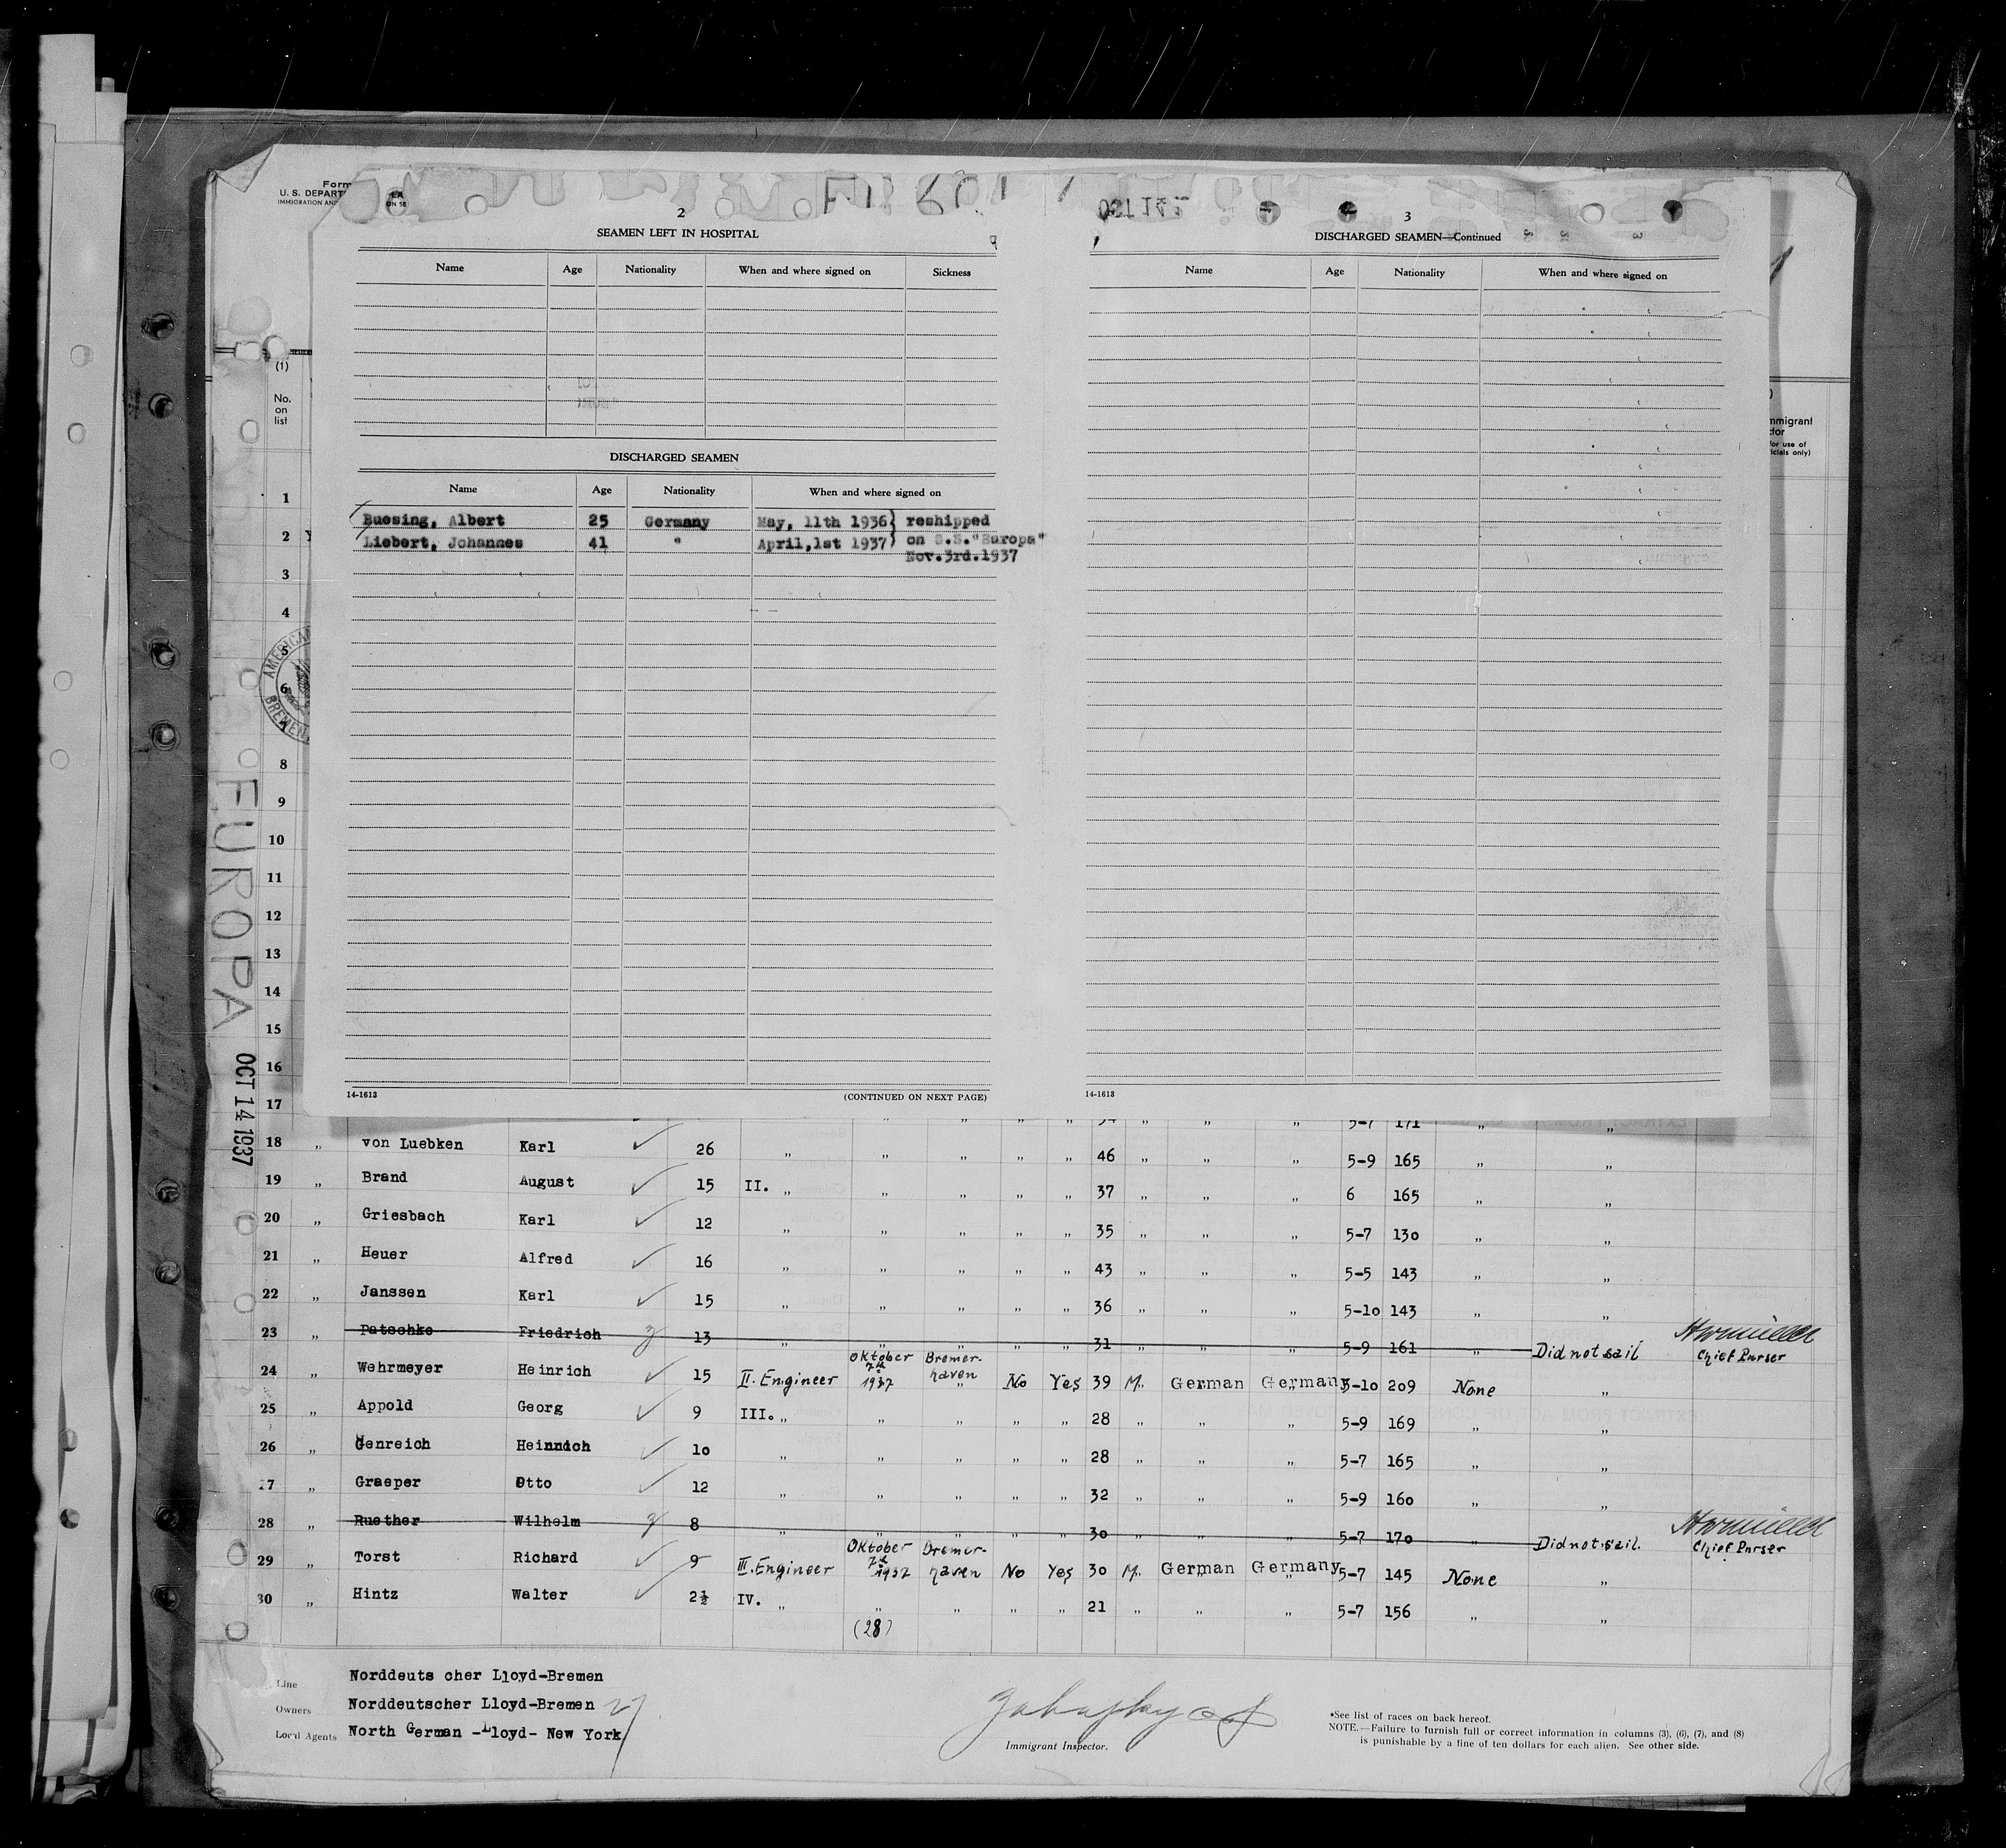 Form
U. S. DEPART
IMMIGRATION AND
EUROPA
OCT 14 1937
2
SEAMEN LEFT IN HOSPITAL
Name Age Nationality When and where signed on Sickness
DISCHARGED SEAMEN
Name Age Nationality When and where signed on
Buesing, Albert 25 Germany May, 11th 1936 } reshipped
Liebert, Johannes 41 " April,1st 1937 } on S.S."Europa"
Nov.3rd.1937
14-1613 (CONTINUED ON NEXT PAGE)
3
DISCHARGED SEAMEN—Continued
Name Age Nationality When and where signed on
14-1613
(1)
No.
on
list
mmigrant
for use of
icials only)
1
2
3
4
5
6
8
9
10
11
12
13
14
15
16
17 5-7 171 „ „
AMERICAN
BREMEN
18 „ von Luebken Karl 26 „ „ „ „ „ 46 „ „ „ 5-9 165 „ „
19 „ Brand August 15 II. „ „ „ „ „ 37 „ „ „ 6 165 „ „
20 „ Griesbach Karl 12 „ „ „ „ „ 35 „ „ „ 5-7 130 „ „
21 „ Heuer Alfred 16 „ „ „ „ „ 43 „ „ „ 5-5 143 „ „
22 „ Janssen Karl 15 „ „ „ „ „ 36 „ „ „ 5-10 143 „ „
23 „ Patschke Friedrich 13 „ „ „ „ „ 31 „ „ „ 5-9 161 „ Did not sail Chief Purser
24 „ Wehrmeyer Heinrich 15 II. Engineer Oktober 7th 1937 Bremerhaven No Yes 39 M. German Germany 5-10 209 None „
25 „ Appold Georg 9 III. „ „ „ „ „ 28 „ „ „ 5-9 169 „ „
26 „ Genreich Heinrich 10 „ „ „ „ „ 28 „ „ „ 5-7 165 „ „
27 „ Graeper Otto 12 „ „ „ „ „ 32 „ „ „ 5-9 160 „ „
28 „ Ruether Wilhelm 8 „ „ „ „ „ 30 „ „ „ 5-7 170 „ Did not sail. Chief Purser
29 „ Torst Richard 9 III. Engineer Oktober 7th 1937 Bremerhaven No Yes 30 M. German Germany 5-7 145 None „
30 „ Hintz Walter 2½ IV. „ „ „ „ „ 21 „ „ „ 5-7 156 „ „
(28)
Line Norddeuts cher Lloyd-Bremen
Owners Norddeutscher Lloyd-Bremen 27
Local Agents North German -Lloyd- New York
Immigrant Inspector.
*See list of races on back hereof.
NOTE.—Failure to furnish full or correct information in columns (3), (6), (7), and (8)
is punishable by a fine of ten dollars for each alien. See other side.
EUROPA
OCT 14 1937